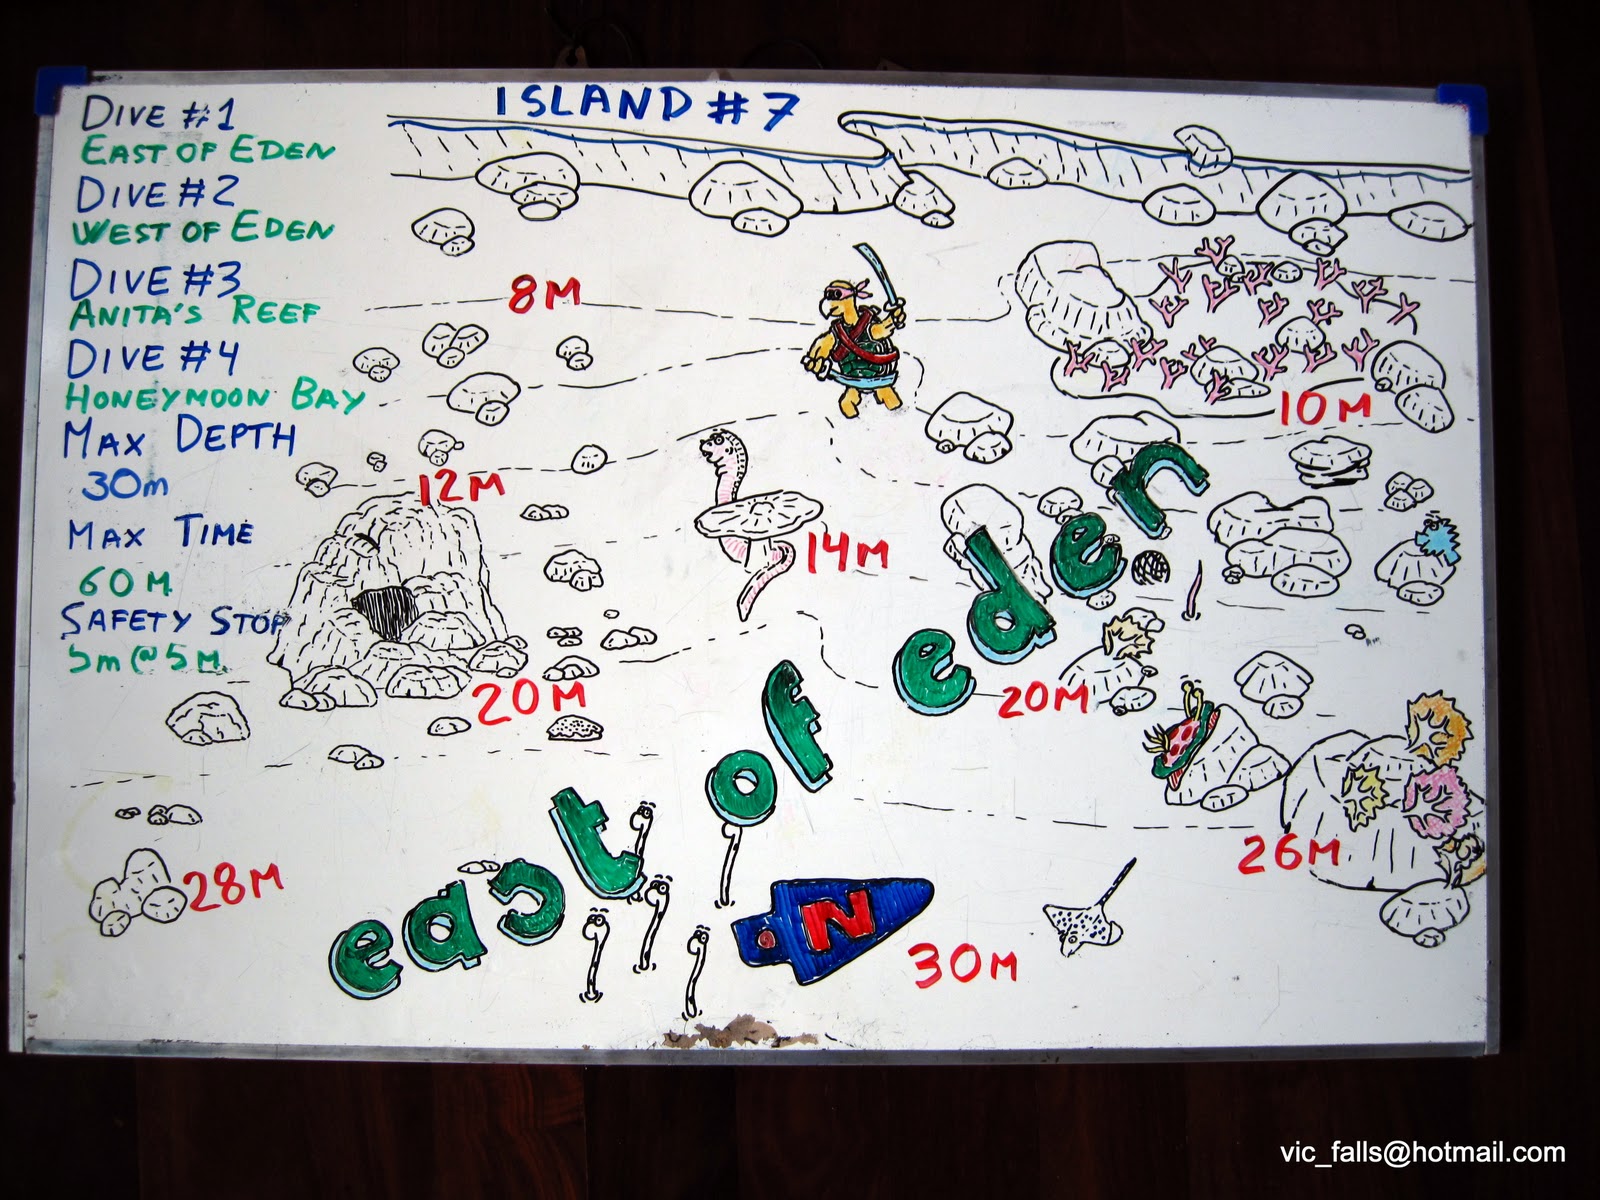 ISLAND #7
DIVE #1
EAST OF EDEN
DIVE #2
WEST OF EDEN
DIVE #3
ANITA'S REEF
DIVE #4
HONEYMOON BAY
MAX DEPTH
30m
MAX TIME
60 M
SAFETY STOP
5m @ 5 M.
8M
10M
12M
14M
20M
20M
26M
28M
30M
east of eden
N
vic_falls@hotmail.com